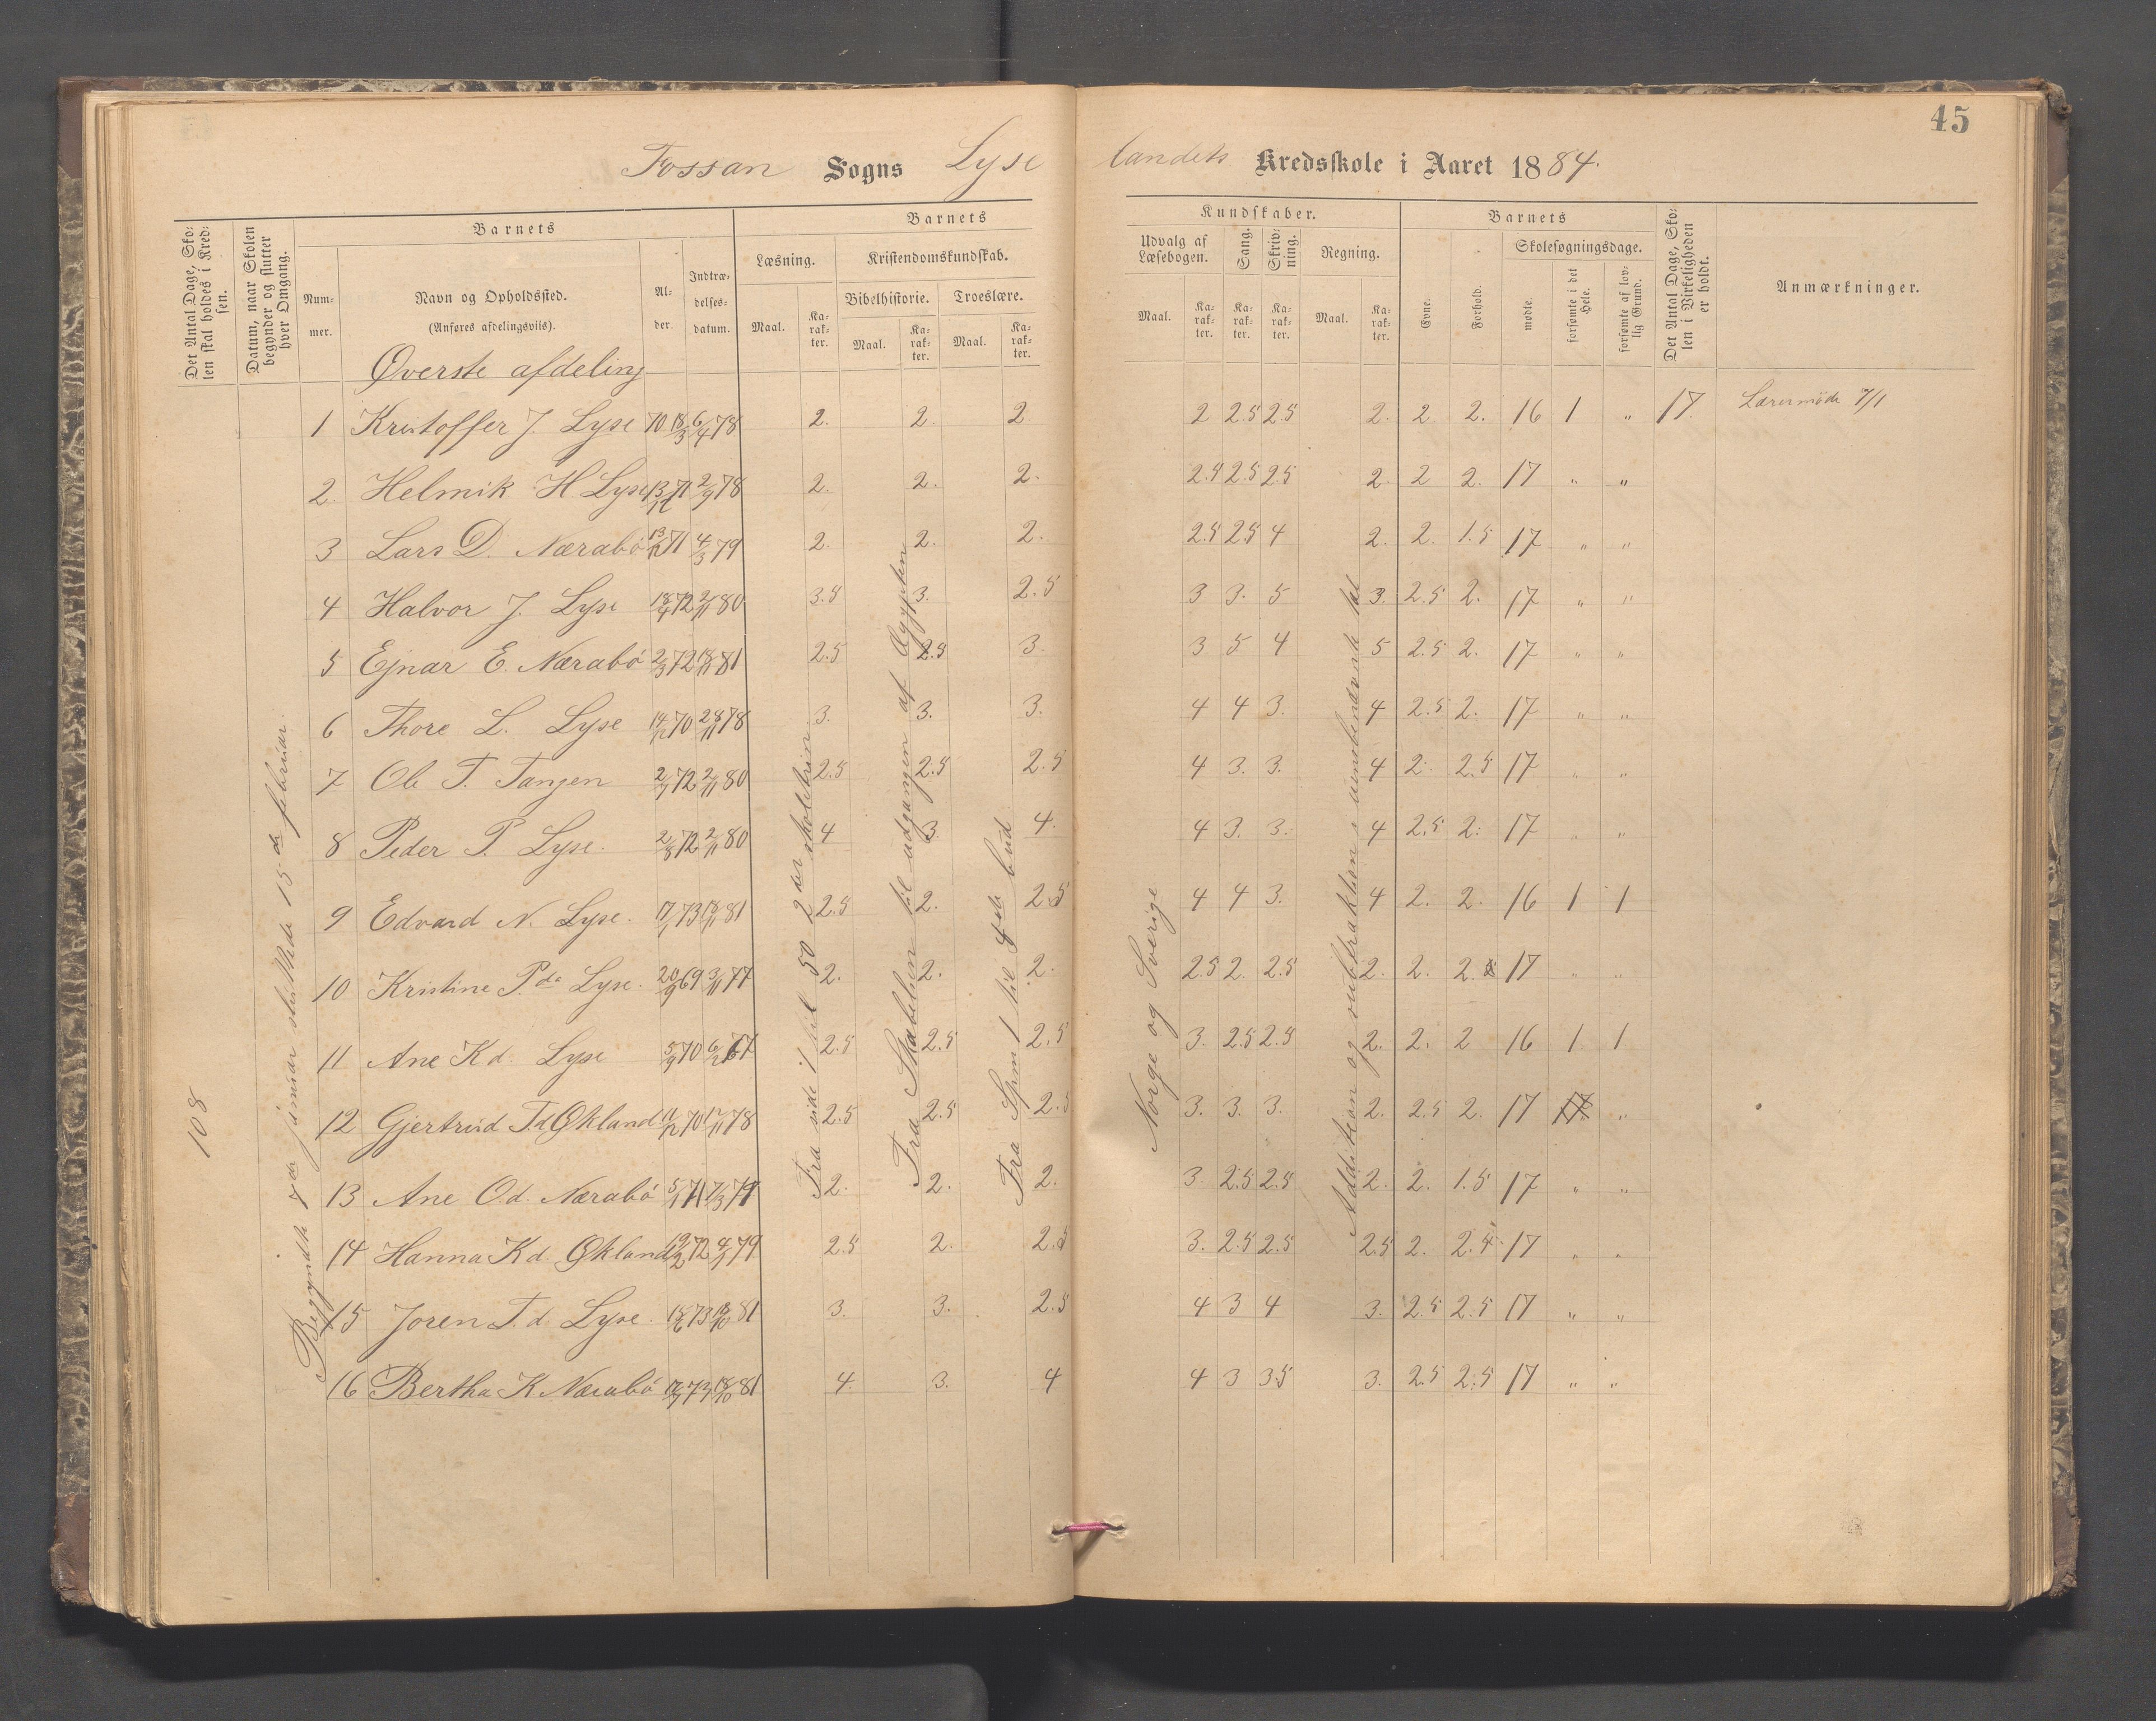 45
Fossan Sogns Lyse landets Kredsskole i Aaret 1884.
Det Antal Dage, Skolen skal holdes i Kredsen.
Datum, naar Skolen begynder og slutter hver Omgang.
Barnets
Nummer.
Navn og Opholdssted.
(Anføres afdelingsviis).
Alder.
Indtrædelsesdatum.
Barnets Kundskaber.
Læsning. Maal. Karakter.
Kristendomskundskab.
Bibelhistorie. Maal. Karakter.
Troeslære. Maal. Karakter.
Udvalg af Læsebogen. Maal. Karakter.
Sang. Karakter.
Skrivning. Karakter.
Regning. Maal. Karakter.
Barnets
Evne.
Forhold.
Skolesøgningsdage.
mødte.
forsømte i det Hele.
forsømte af lovlig Grund.
Det Antal Dage, Skolen i Virkeligheden er holdt.
Anmærkninger.
Øverste afdeling
1 Kristoffer J. Lyse 70 18/3 6/4 78 2. 2. 2 2 2.5 2.5 2. 2 2. 16 1 " 17. Læremøde 7/1
2. Helmik H Lyse 71 2/9 78 2. 2. 2. 2.5 2.5 2.5 2. 2 2. 17 " "
3 Lars D. Nærabø 71 4/3 79 2. 2. 2. 2.5 2.5 4 2. 2. 1.5 17 " "
4 Halvor J. Lyse 72 2/11 80 3.5 3. 2.5 3 3. 5 3. 2.5 2. 17 " "
5 Ejnar E. Nærabø 2/3 72 18/11 81 2.5 2.5 3. 3 5 4 5 2.5 2. 17 " "
6 Thore L. Lyse 70 28/11 78 3. 3. 3. 4 4 3. 4 2.5 2. 17 " "
7 Ole T. Tangen 72 2/11 80 2.5 2.5 2.5 4 3. 3. 4 2. 2.5 17 " "
8 Peder P. Lyse. 2/8 72 2/11 80 4 3. 4. 4 3. 3. 4 2.5 2. 17 " "
9 Edvard N. Lyse. 73 18/11 81 2.5 2. 2.5 4 4 3. 4 2. 2. 16 1 1
10 Kristine P.da Lyse. 20/9 69 3/11 77 2. 2. 2. 2.5 2. 2.5 2. 2. 2. 17 " "
11 Ane K d. Lyse 5/9 70 2.5 2.5 2.5 3. 2.5 2.5 2. 2. 2 16 1. 1
12 Gjertrud T.d Økland 70 78 2.5 2.5 2.5 3. 3. 3. 2. 2.5 2. 17 "
13 Ane O.d. Nærabø 71 79 2. 2. 2. 3. 2.5 2.5 2. 2. 1.5 17 " "
14 Hanna K d. Økland 72 79 2.5 2. 2.5 3. 2.5 2.5 2.5 2. 2.5 17 " "
15 Joren T. d. Lyse. 18/6 73 18/10 81 3. 3. 2.5 4 3 4 3. 2.5 2.5 17 " "
16 Bertha K. Nærabø 73 18/10 81 4. 3. 4 4 3 3.5 3. 2.5 2.5 17 " "
108
Begyndte 7de januar sluttede 15de februar.
Fra side 1 til 50 2det skoletrin
Fra Skabelsen til udgangen af Ægypten
Fra Spm 1 til 4de bud
Norge og Sverige
Addition og subtraktion s uensbenævnte tal